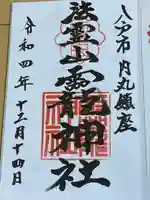 八戸市内丸鎮座
法霊山龗神社
令和四年十二月十四日